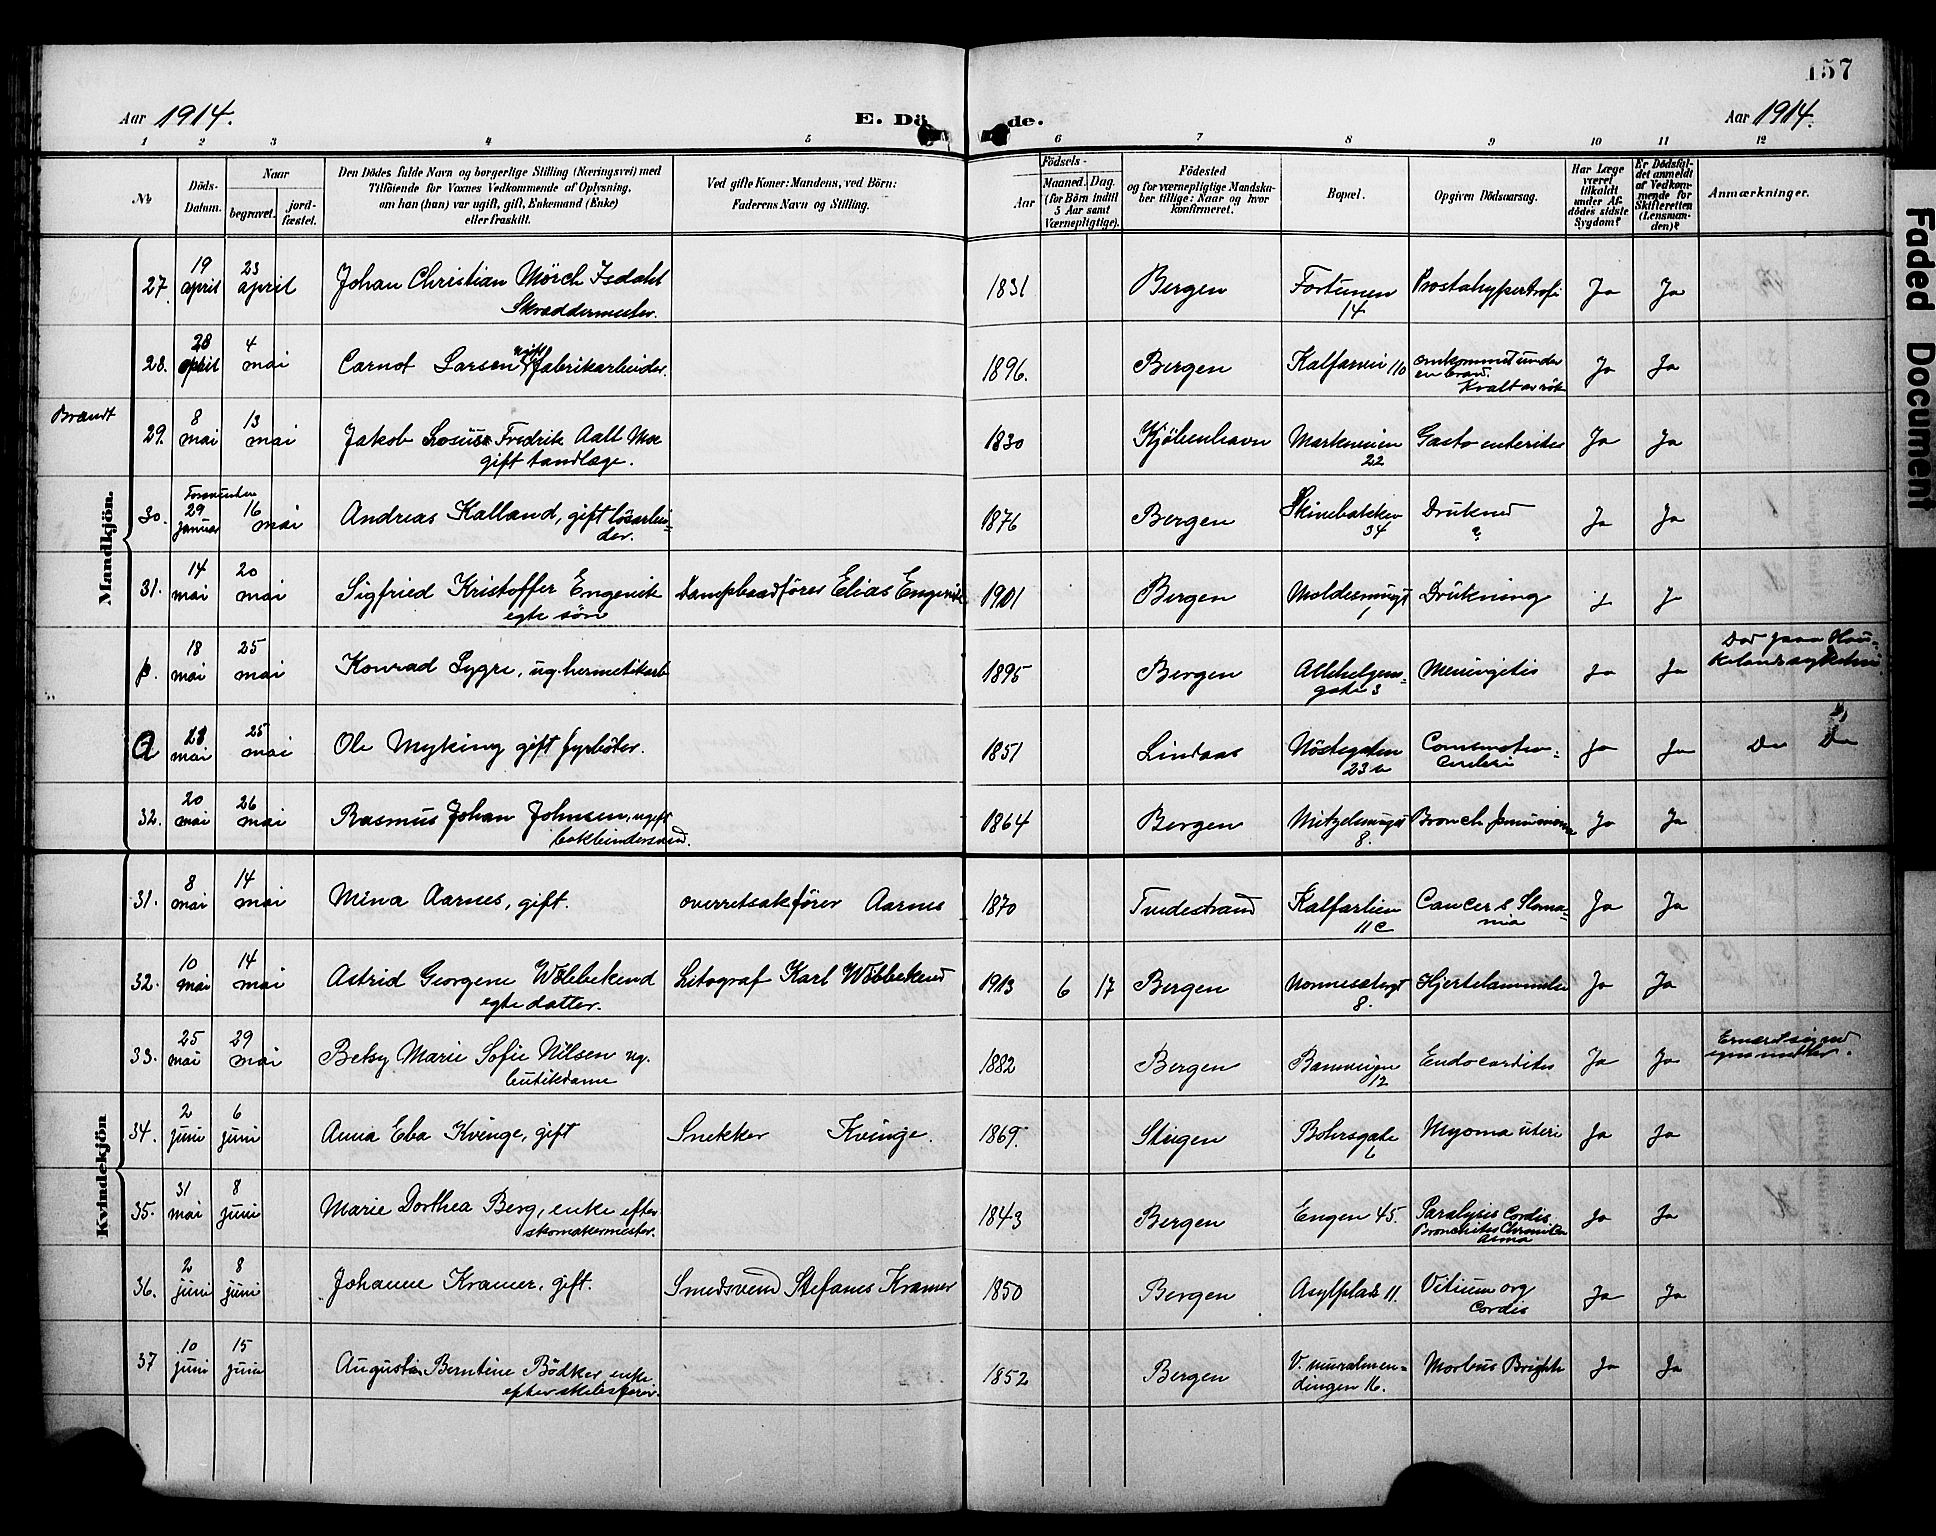 157
Aar 1914.
E. Dö de.
Aar 1914.
1 2 3 4 5 6 7 8 9 10 11 12
No
Döds-
Datum.
Naar
begravet.
jord-
fæstet.
Den Dödes fulde Navn og borgerlige Stilling (Næringsvei) med
Tilföiende for Voxnes Vedkommende af Oplysning,
om han (hun) var ugift, gift, Enkemand (Enke)
eller fraskilt.
Ved gifte Koner: Mandens, ved Börn:
Faderens Navn og Stilling.
Födsels-
Aar
Maaned. Dag.
(for Börn indtil
5 Aar samt
Værnepligtige).
Födested
og for værnepligtige Mandska-
ber tillige: Naar og hvor
konfirmeret.
Bopæl.
Opgiven Dödsaarsag.
Har Læge
været
tilkaldt
under Af-
dödes sidste
Sygdom?
Er Dödsfal-
det anmeldt
af Vedkom-
mende for
Skifteretten
(Lensman-
den)?
Anmærkninger.
Mandkjön.
27. 19 april 23 april Johan Christian Mörch Isdahl 1831 Bergen Fortunen 14 Prostahypertrofi Ja Ja
Skræddermester.
28. 28 april 4 mai Carnot Larsen ugift fabrikarbeider. 1896. Bergen Kalfarvei 110 omkommet under
en brand.
Kvalt av røk Ja Ja
Brandt
29. 8 mai 13 mai Jakob Fredrik Aall Moe 1830 Kjöbenhavn Markeveien 22 Gastro enterites Ja Ja
gift tandlæge.
30. Forsvunden 29 januar 16 mai Andreas Kalland, gift løsarbei- 1876 Bergen 34 Druknet ? Ja Ja
der.
31. 14 mai 20 mai Sigfried Kristoffer Engevik Dampbaadfører Elias Engevik 1901 Bergen Drukning J J
egte søn
p. 18 mai 25 mai Konrad Lygre, ug. hermetikarb 1895 Bergen Allehelgens-
gate 3 Meningitis Ja Ja Død paa Hau-
kelandsykehus
Q 21 mai 25 mai Ole Myking gift fyrbøter. 1851 Lindaas Nöstegaten
23 a Commotio
cerebri Ja Ja Do Do
32. 20 mai 26 mai Rasmus Johan Johnsen, ugift 1864 Bergen Mitzelsmuget
8. Bronch pneumonia Ja Ja
bokbindersvend.
Kvindekjön
31. 8 mai 14 mai Mina Aarnes, gift. overretsakfører Aarnes 1870 Tvedestrand Kalfarlien
11 c Cancer Ja Ja
32. 10 mai 14 mai Astrid Georgene Wöbbekend Litograf Karl Wöbbekend 1913 6 17 Bergen Nonnesetergt
8. Hjertelammelse Ja Ja
egte datter.
33. 25 mai 29 mai Betsy Marie Sofie Nilsen ug. 1882 Bergen Baneveien
12 Endocarditis Ja Ja
butikdame
34. 2 juni 6 juni Anna Eba Kvinge, gift Snekker Kvinge. 1869. Steigen Bohrsgate
6 Myoma uteri Ja Ja
35. 31 mai 8 juni Marie Dorthea Berg, enke efter 1843 Bergen Engen 45. Paralysis Cordis
Bronchites Chronica
asma Ja Ja
skomakermester.
36. 2 juni 8 juni Johanne Kramer, gift. Smedsvend Stefanus Kramer 1850 Bergen Asylplads 11. Vitium org
Cordis Ja Ja
37 10 juni 15 juni Augusta Berntine Bödker, enke 1852 Bergen V. muralmen-
dingen 16. Morbus Brightii Ja Ja
efter skibsfører.
Faded Document